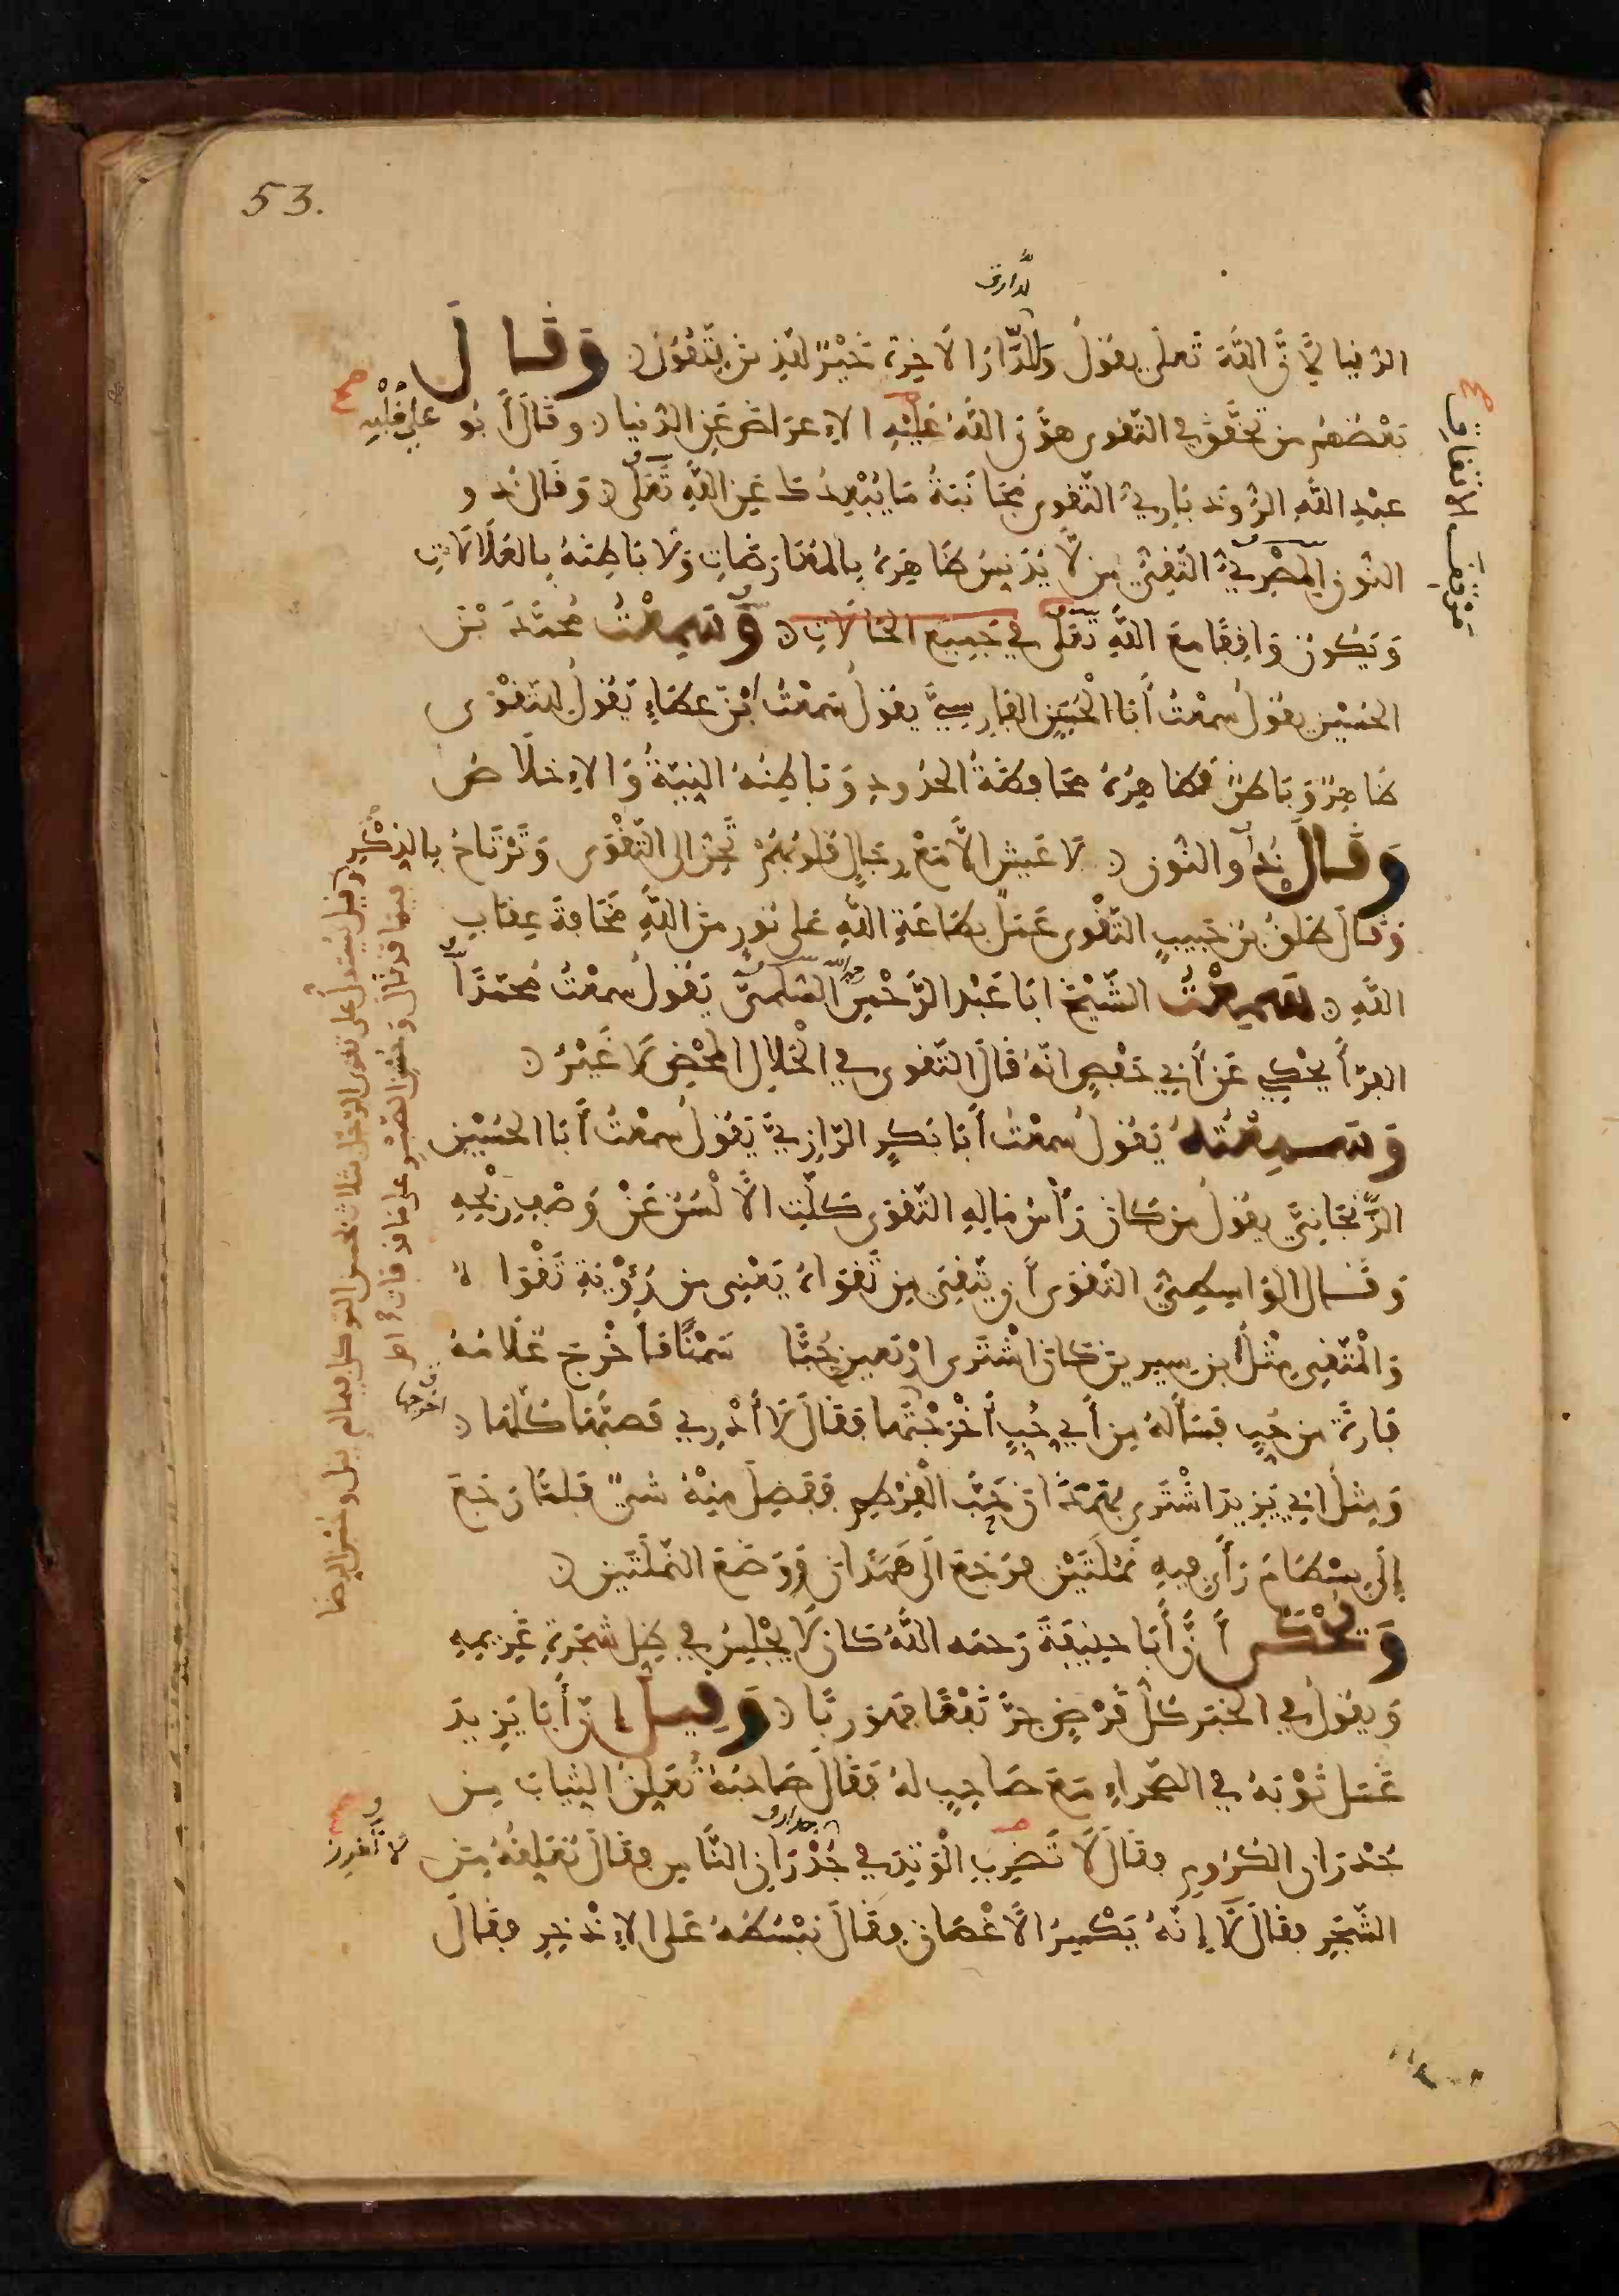 53.
الدنيا لِأَنَّ اللَّهَ تَعلَى يقولُ وَلَلدَّارُ الاخِرةُ خَيْرٌ لِلَّذِينَ يَتَّقُونَ وَقَالَ
بَعْضُهُم من تحقَّقَ في التَّقوى هوَّنَ اللَّهُ عَلَيْهِ الاِعرَاضَ عَنِ الدُّنيا وقالَ أبُو
على قلبِهِ
عبْدِ اللَّهِ الرُّوذبَارِيُّ التَّقوى مُجَانَبَةُ مَا يُبْعِدُكَ عَنِ اللَّهِ تَعَلى وَقَالَ ذُو
النُّونِ المِصْرِيُّ التَّقِيُّ مَن لَّا يُدَنِّسُ ظَاهِرَهُ بِالمُعَارَضَاتِ وَلَا بَاطِنَهُ بِالعُلَالَاتِ
وَيَكُونُ وَاقِفًا مَعَ اللَّهِ تَعَلى في جَمِيعِ الحَالَاتِ وَسَمِعْتُ محمَّدَ بْنَ
مَوْقِفَ الاتفاق
الحُسَيْنِ يقولُ سَمعْتُ أَبَا الْحُسَيْنِ الفَارِسِيَّ يقولُ سَمعْتُ ابْنَ عطَاءٍ يَقُولُ لِلتَّقْوَى
ظَاهِرٌ وَبَاطنٌ فظَاهِرُهُ محَافظَةُ الحُدُودِ وَبَاطِنُهُ النِّيَّةُ وَالاِخلَاصُ
وَقَالَ ذُو النُّون لَا عَيشَ الَّا مَعْ رِجَالٍ قلوبُهُمْ تَحِنُّ الى التَّقْوَى وَتَرْتَاحُ بِالذِّكْرِ
وَقَالَ طَلقُ بنُ حَبِيبٍ التَّقْوى عَمَلٌ بِطَاعَةِ اللَّهِ عَلى نُورٍ منَ اللَّهِ مَخَافَةَ عِقَابِ
اللَّهِ سَمِعْتُ الشَّيْخَ ابَا عَبْدِ الرَّحْمنِ السُّلَميَّ يَقُولُ سَمعْتُ مُحَمَّدًا
الفرَّا يَحْكي عَن أَبي حَفْصٍ انَّهُ قَالَ التَّقوى في الْحَلَالِ المَحْضِ لَا غَيْرُ
وَسَمِعْتُهُ يَقُولُ سَمعْتُ أَبَا بَكرٍ الرَّازِيَّ يَقُولُ سَمعْتُ أَبَا الحُسَيْنِ
الزَّنجَانيَّ يقولُ مَن كانَ رَأْسُ مَالِهِ التَّقوى كلَّتِ الأَلْسُنُ عَنْ وَصْفِ رِبْحِهِ
وَقَالَ الوَاسِطيُّ التَّقوَى أَن يَتَّقِيَ مِن تَقوَاهُ يَعْنِى مِن رُؤْيَةِ تَقْوَاهُ
وَالْمتَّقِي مِثْلُ ابنِ سِيرِينَ كَانَ اشْتَرَى ارْبَعِينَ حُبًّا سَمْنًا فأَخْرَجَ غُلَامُهُ
فَارَةً مِن حُبٍّ فَسَأَلَهُ مِن أَيِّ حُبٍّ أَخْرَجْتَها فقَالَ لَا أَدْرِي فَصَبَّهَا كُلَّهَا
وَمِثل ابي يَزِيدَ اشْتَرى بهَمَذَانَ حَبَّ القُرْطُمِ فَفَضَلَ مِنْهُ شَيٌ فَلمَّا رَجَعَ
إِلَى بِسْطَامَ رَأَى فيهِ نَمْلَتَيْنِ فرَجَعَ الَى هَمَذَانَ وَوَضَعَ النَّملَتَينِ
وَيُحْكَى أَنَّ أَبَا حنِيفَةَ رَحمَه اللَّهُ كانَ لَا يَجْلِسُ في ظِلِّ شَجَرةِ غَرِيمِهِ
وَيقُولُ في الخَبَرِ كلُّ قَرْضٍ جَرَّ نَفْعًا فهُوَ رِبًا وَقِيلَ إِنَّ أَبَا يَزِيدَ
غَسَلَ ثَوْبَهُ في الصَّحراءِ مَعَ صَاحِبٍ لهُ فقَالَ صَاحبُهُ نُعَلِّقُ الثِّيابَ مِن
جُدْرَانِ الكرُومِ فقَالَ لَا تَضْرِبِ الْوَتِدَ في جُدْرَانِ النَّاسِ فقَالَ نُعَلِّقُهُ مِنَ
الشَّجَرِ فقَالَ لَا إِنَّهُ يَكْسِرُ الَاغْصَانَ فقَالَ نَبْسُطُهُ عَلى الاِذْخِرِ فقَالَ
وقيل يستدل على تقوى الرجل بثلاث بحسن التوكل فيما لم ينل وحسن الرضا
فيما قد نال وحسن الصبر على ما قد فات